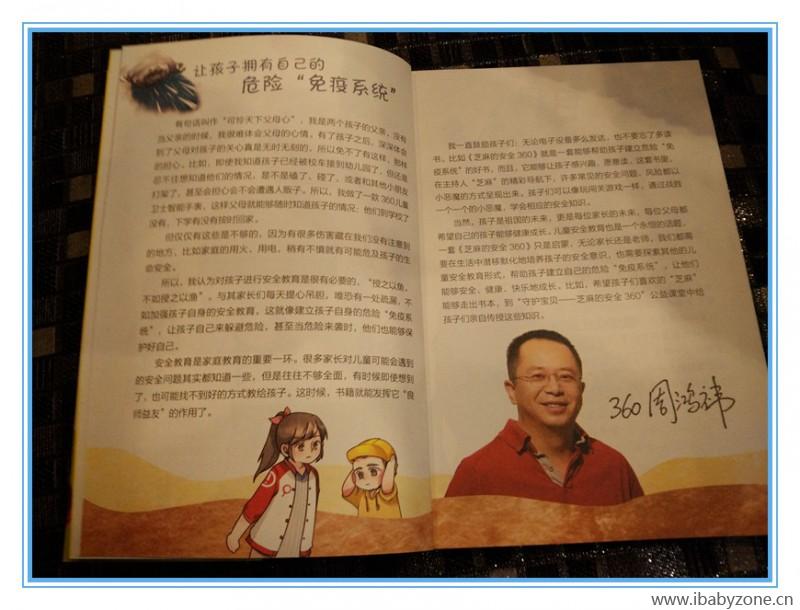 让孩子拥有自己的
危险“免疫系统”
有句话叫作“可怜天下父母心”，我是两个孩子的父亲，没有
当父亲的时候，我很难体会父母的心情，有了孩子之后，深深体会
到了父母对孩子的关心真是无时无刻的，所以免不了有这样、那样
的担心，比如，即使我知道孩子已经被校车接到幼儿园了，但还是
忍不住想知道他们的情况，是不是磕了、碰了，或者和其他小朋友
打架了，甚至会担心会不会遭遇人贩子。所以，我做了一款360儿童
卫士智能手表，这样父母就能够随时知道孩子的情况：他们到学校了
没有，下学有没有按时回家。
但仅仅有这些是不够的，因为有很多伤害藏在我们没有注意到
的地方，比如家庭的用火、用电，稍有不慎就有可能危及孩子的生
命安全。
所以，我认为对孩子进行安全教育是很有必要的，“授之以鱼，
不如授之以渔”。与其家长们每天提心吊胆，唯恐有一处疏漏，不
如加强孩子自身的安全教育，这就像建立孩子自身的危险“免疫系
统”，让孩子自己来躲避危险，甚至当危险来袭时，他们也能够保
护好自己。
安全教育是家庭教育的重要一环。很多家长对儿童可能会遇到
的安全问题其实都知道一些，但是往往不够全面，有时候即使想到
了，也可能找不到好的方式教给孩子。这时候，书籍就能发挥它“良
师益友”的作用了。
我一直鼓励孩子们：无论电子设备多么发达，也不要忘了多读
书。比如《芝麻的安全360》就是一套能够帮助孩子建立危险“免
疫系统”的好书，而且，它能够让孩子感兴趣，愿意读，这套书里，
在主持人“芝麻”的精彩导航下，许多常见的安全问题、风险都以
小恶魔的方式呈现出来，孩子们可以像玩闯关游戏一样，通过战胜
一个一个的小恶魔，学会相应的安全知识。
当然，孩子是祖国的未来，更是每位家长的未来，每位父母都
希望自己的孩子能够健康成长，儿童安全教育也是一个永恒的话题，
一套《芝麻的安全360》只是启蒙，无论家长还是老师，我们都需
要在生活中潜移默化地培养孩子的安全意识，也需要探索其他的儿
童安全教育形式，帮助孩子建立自己的危险“免疫系统”，让他们
能够安全、健康、快乐地成长。比如，希望孩子们喜欢的“芝麻”
能够走出书本，到“守护宝贝——芝麻的安全360”公益课堂中给
孩子们亲自传授这些知识。
360 周鸿祎
www.ibabyzone.cn